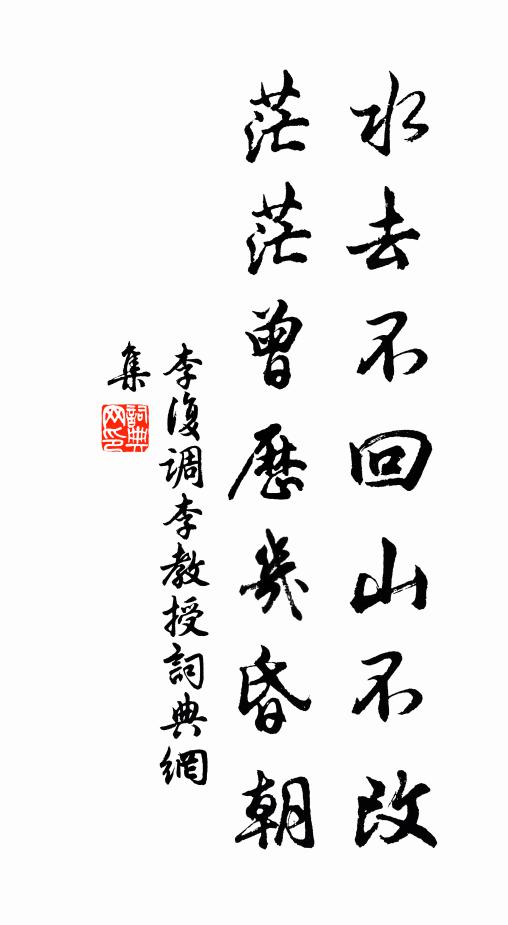 水去不回山不改
茫茫曾歷幾昏朝
李復调李教授詞典網
集
詞典
网印